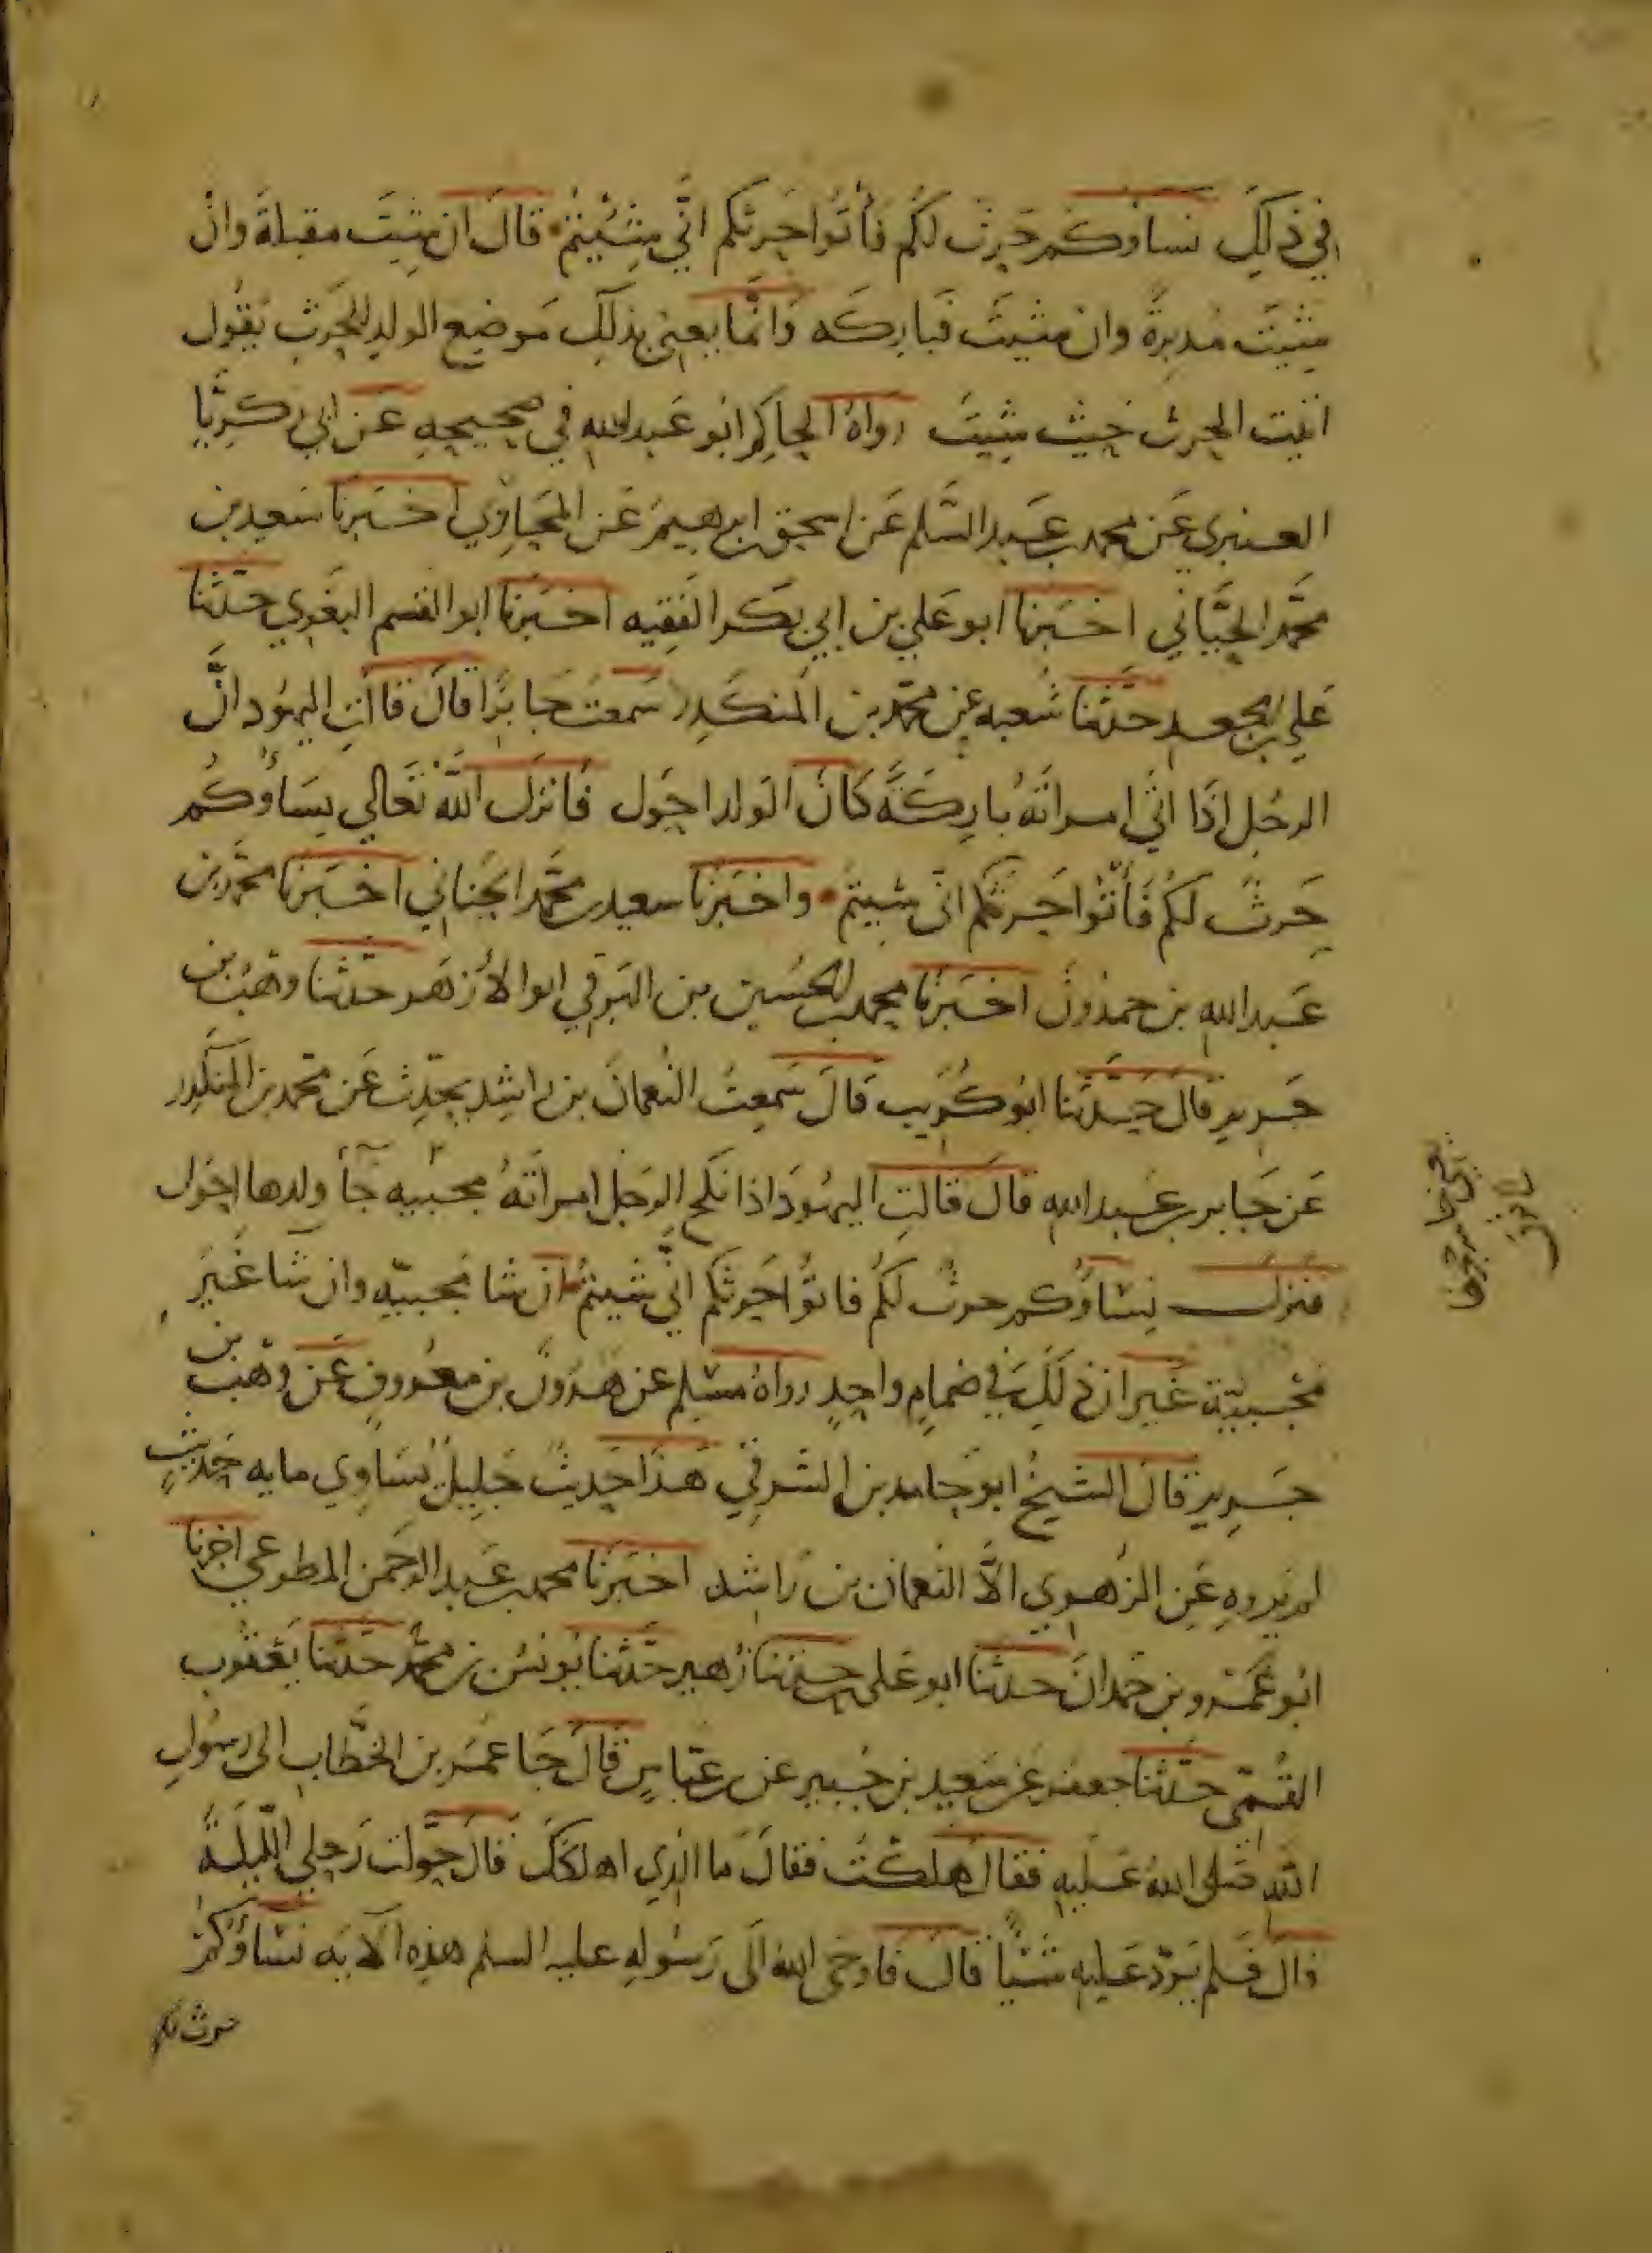 في ذلك نساؤكم حرث لكم فأتوا حرثكم انى شيتم قال ان شيت مقبلة وان
شيت مدبرة وان شيت فباركه وانما يعني بذلك موضع الولد للحرث يقول
ائت الحرث حيث شيت رواه الحاكم ابو عبد الله في صحيحه عن ابي زكريا
العنبري عن محمد بن عبد السلم عن اسحق بن ابرهيم عن المحاربي اخبرنا سعيد بن
محمد الحياني اخبرنا ابو علي بن ابي بكر الفقيه اخبرنا ابو القسم البغوي حدثنا
علي بن الجعد حدثنا شعبه عن محمد بن المنكدر سمعت جابرا قال قالت اليهود ان
الرجل اذا اتى امراته باركة كان الولد احول فانزل الله تعالى نساؤكم
حرث لكم فأتوا حرثكم انى شيتم واخبرنا سعيد بن محمد الحناني اخبرنا محمد بن
عبد الله بن حمدون اخبرنا محمد بن الحسين بن الشرقي ابو الأزهر حدثنا وهب بن
جرير قال حدثنا ابو كريب قال سمعت النعمان بن راشد يحدث عن محمد بن المنكدر
عن جابر بن عبد الله قال قالت اليهود اذا نكح الرجل امراته مجبيه جآ ولدها احول
فنزل نساؤكم حرث لكم فاتوا حرثكم انى شيتم ان شا مجبيه وان شا غير
مجبية غير ان ذلك في ضمام واحد رواه مسلم عن هرون بن معروف عن وهب بن
جرير قال الشيخ ابو حامد بن الشرقي هذا حديث جليل يساوي مايه حديث
لم يروه عن الزهري الا النعمان بن راشد اخبرنا محمد بن عبد الرحمن المطوعي اخبرنا
ابو عمرو بن حمدان حدثنا ابو علي حدثنا زهير حدثنا يونس بن محمد حدثنا يعقوب
القمي حدثنا جعفر عن سعيد بن جبير عن بن عباس قال جا عمر بن الخطاب الى رسول
الله صلى الله عليه فقال هلكت فقال ما الذي اهلكك قال حولت رحلي الليلة
قال فلم يرد عليه شيا قال فاوحى الله الى رسوله عليه السلم هذه الآيه نساؤكم
حرث لكم